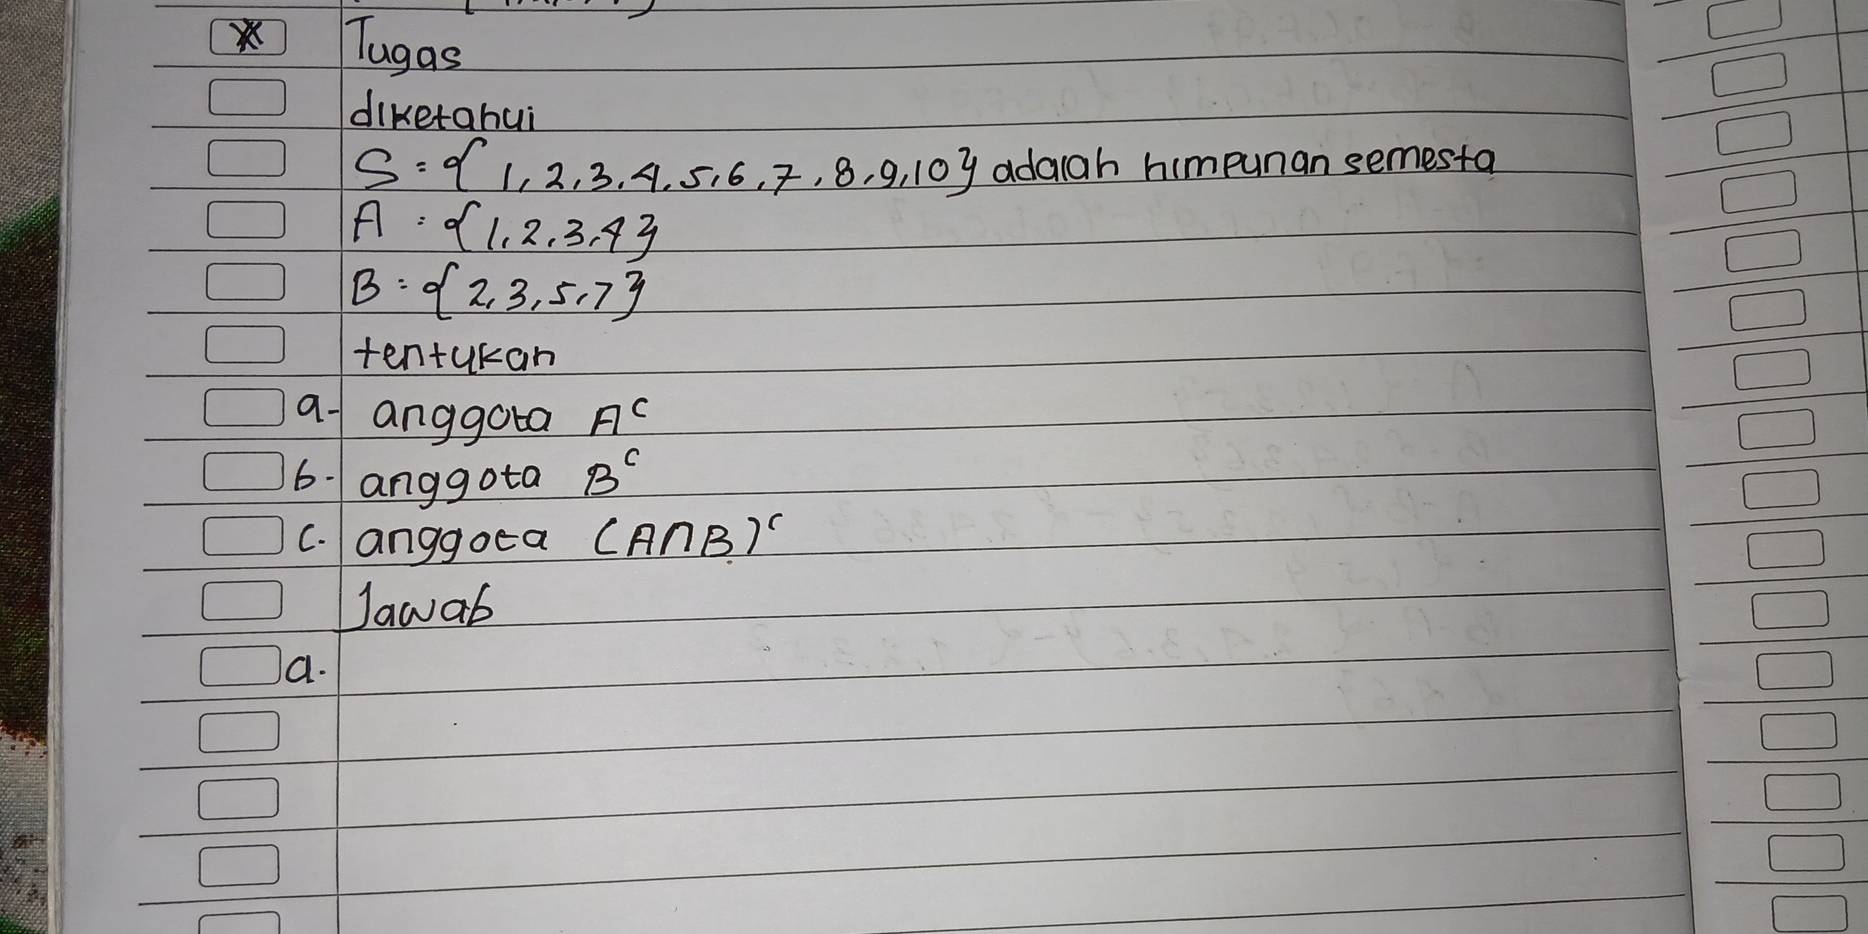 Tugas
diketahui
S = { 1, 2, 3, 4, 5, 6, 7, 8, 9, 10 } adalah himpunan semesta
A = { 1, 2, 3, 4 }
B = { 2, 3, 5, 7 }
tentukan
a- anggota Aᶜ
b. anggota Bᶜ
c. anggota (A∩B)ᶜ
Jawab
a.